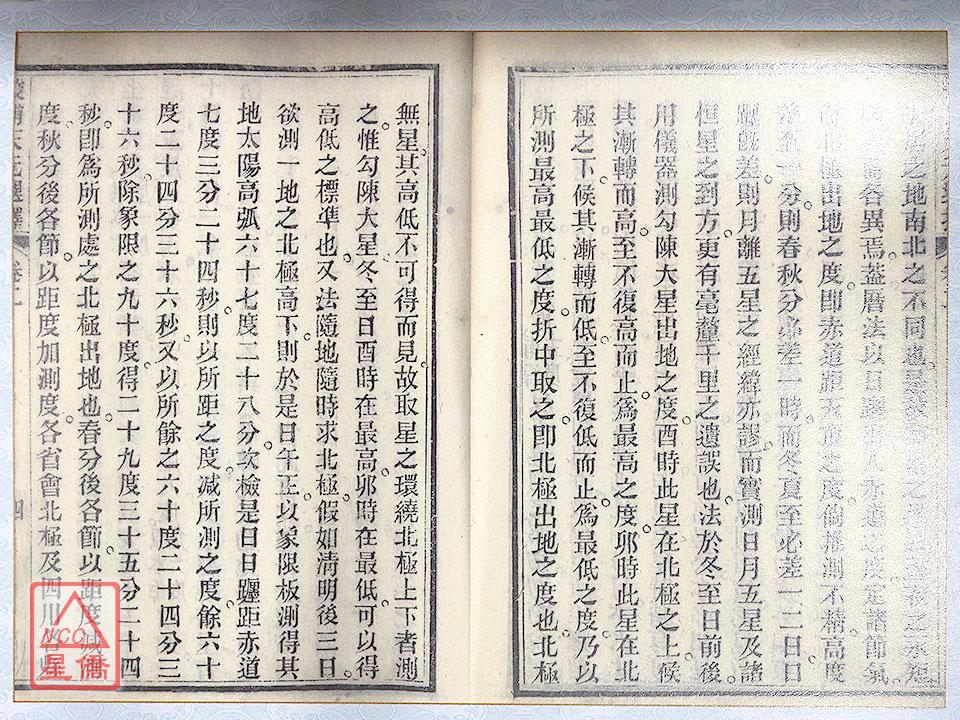 之地南北之不同
各異焉蓋曆法以日躔
北極出地之度卽赤道距天頂之度倘推測不精高度
一分則春秋分必差一時而冬夏至必差一二日日
躔旣差則月離五星之經緯亦謬而實測日月五星及諸
恒星之到方更有毫釐千里之遺誤也法於冬至日前後
用儀器測勾陳大星出地之度酉時此星在北極之上候
其漸轉而高至不復高而止爲最高之度卯時此星在北
極之下候其漸轉而低至不復低而止爲最低之度乃以
所測最高最低之度折中取之卽北極出地之度也北極
無星其高低不可得而見故取星之環繞北極上下者測
之惟勾陳大星冬至日酉時在最高卯時在最低可以得
高低之標準也又法隨地隨時求北極假如清明後三日
欲測一地之北極高下則於是日午正以象限板測得其
地太陽高弧六十七度二十八分次檢是日日躔距赤道
七度三分二十四秒則以所距之度减所測之度餘六十
度二十四分三十六秒又以所餘之六十度二十四分三
十六秒除象限之九十度得二十九度三十五分二十四
秒卽爲所測處之北極出地也春分後各節以距度減
度秋分後各節以距度加測度各省會北極及四川省
卷二
四
NCC
星僑